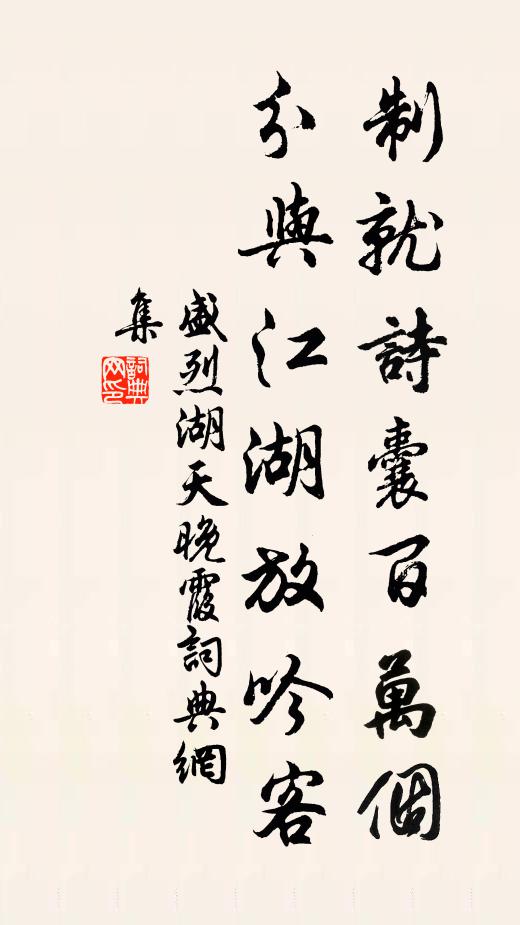 制就詩囊百萬個
分與江湖放吟客
盛烈湖天晚霞詞典網
集
詞典網印